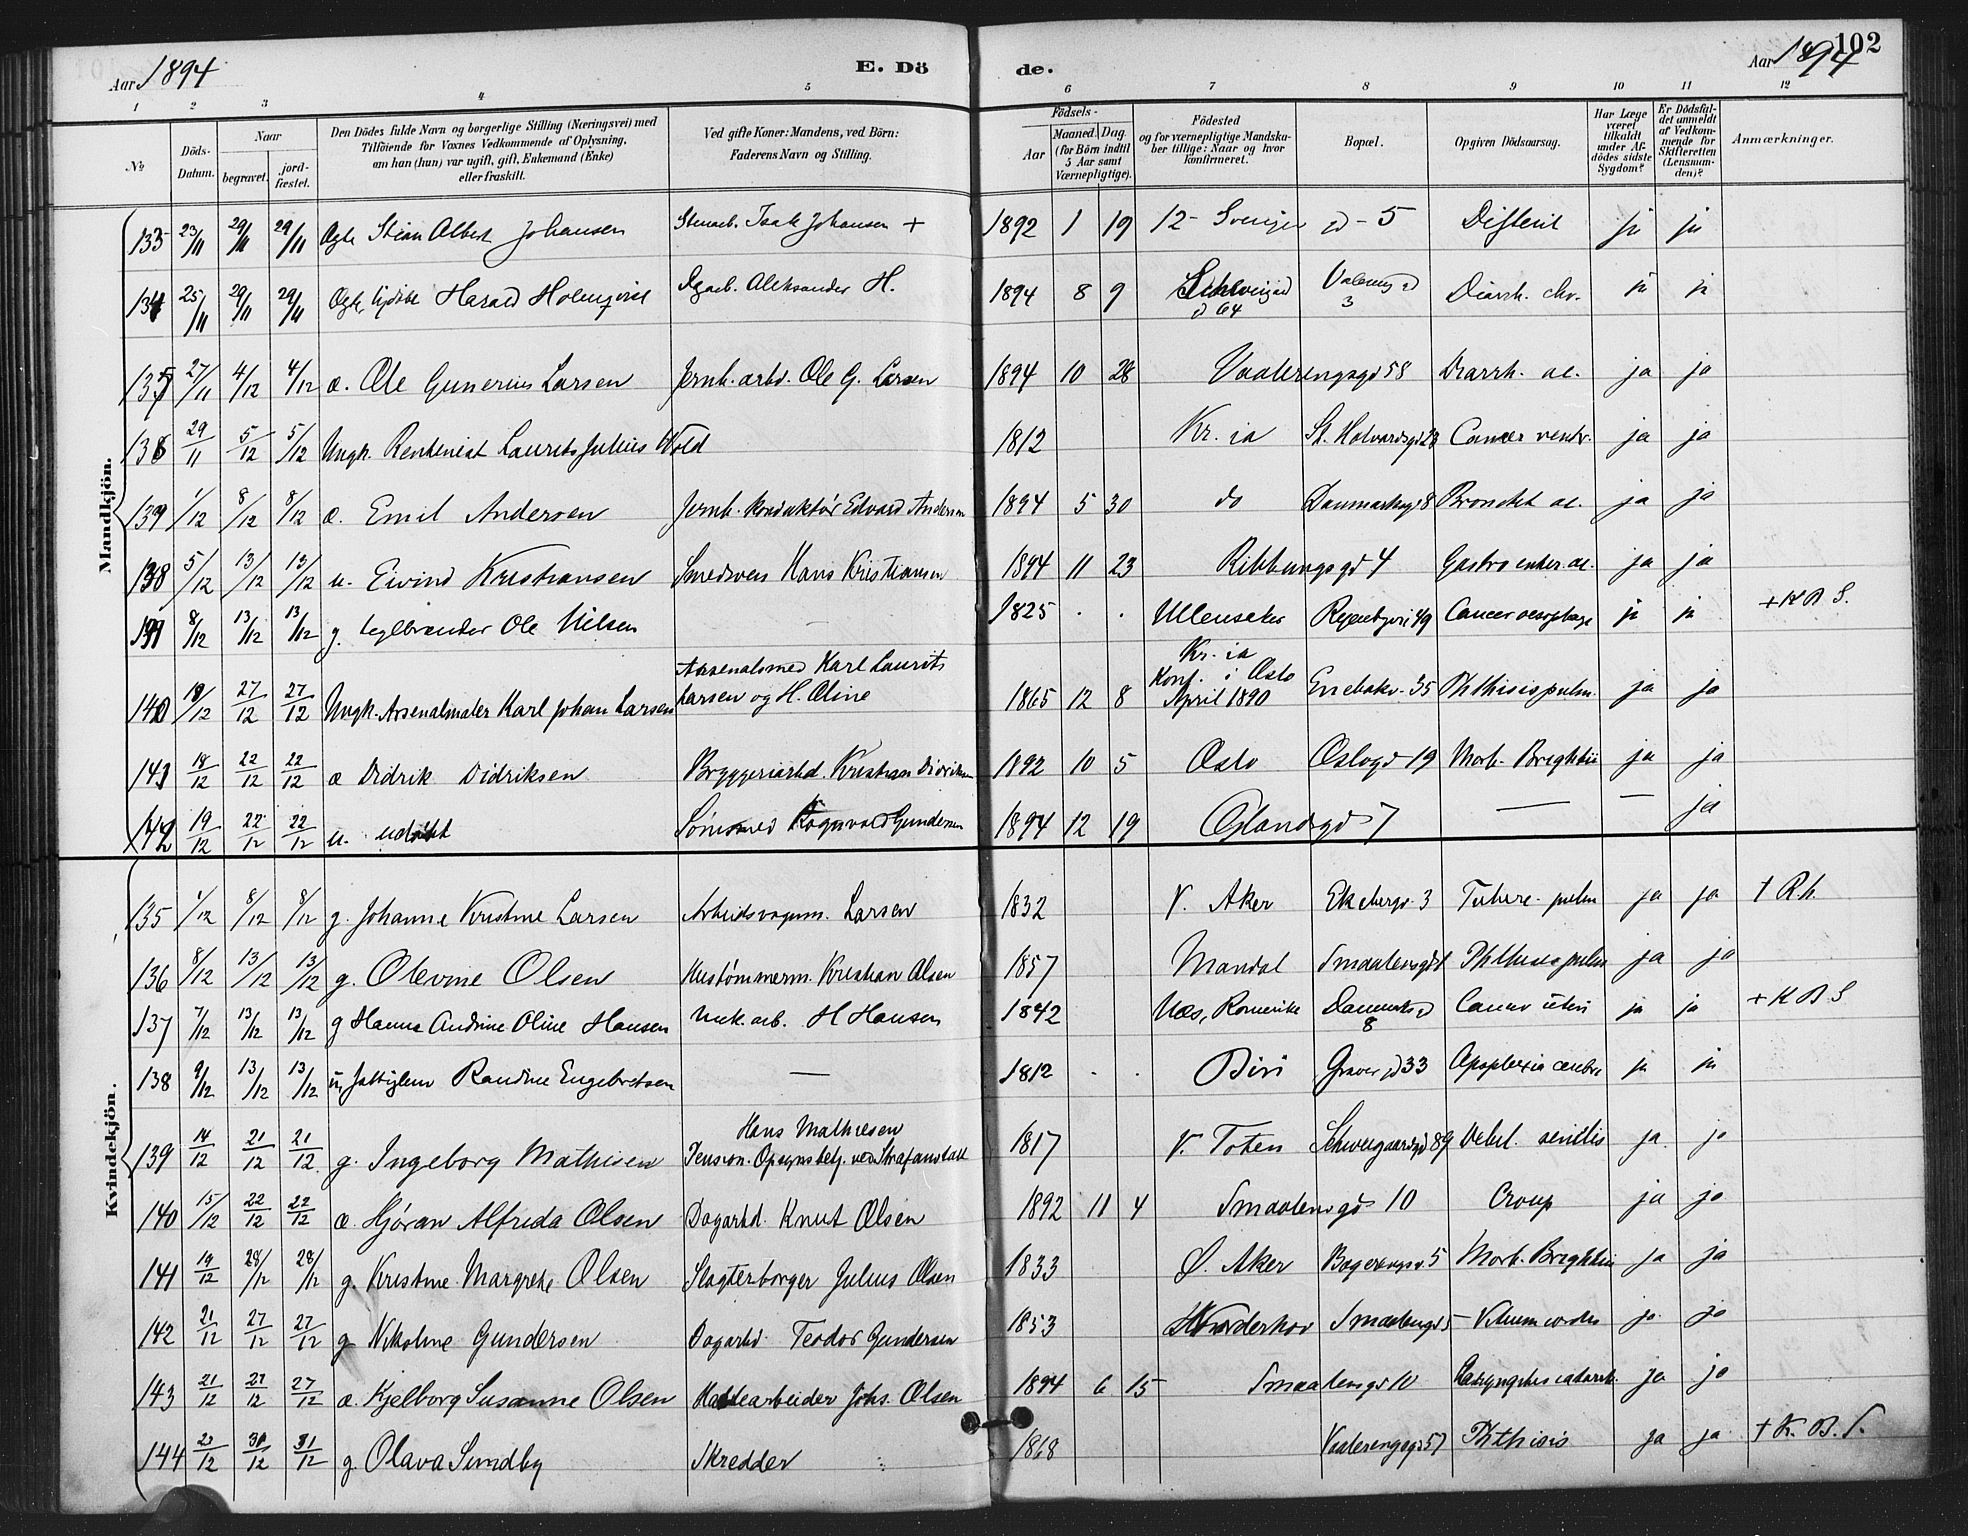 Aar 1894 E. Dö de. Aar 1894 102
1 2 3 4 5 6 7 8 9 10 11 12
№ Döds-Datum. Naar begravet. jord-fæstet. Den Dödes fulde Navn og borgerlige Stilling (Næringsvei) med Tilföiende for Voxnes Vedkommende af Oplysning, om han (hun) var ugift, gift, Enkemand (Enke) eller fraskilt. Ved gifte Koner: Mandens, ved Börn: Faderens Navn og Stilling. Födsels- Aar Maaned. Dag. (for Börn indtil 5 Aar samt Værnepligtige). Födested og for værnepligtige Mandskaber tillige: Naar og hvor konfirmeret. Bopæl. Opgiven Dödsaarsag. Har Læge været tilkaldt under Afdödes sidste Sygdom? Er Dödsfaldet anmeldt af Vedkommende for Skifteretten (Lensmanden)? Anmærkninger.
Mandkjön.
23/11 29/11 29/11 Albert Johansen Stenarb. Isak Johansen + 1892 1 19 12- d - 5 ja ja
25/11 29/11 29/11 Harald Aleksander H. 1894 8 9 64 3 Diarrh. chr. ja ja
27/11 4/12 4/12 æ. Ole Gunerius Larsen Jernb. arbd. Ole G. Larsen 1894 10 28 Vaalerengsgd 58 Diarrh. ac. ja ja
29/11 5/12 5/12 Ungk. Rentenist Laurits Julius Wold 1812 Kr. ia St. Halvardsgd 23 Cancer ventr. ja ja
139 1/12 8/12 8/12 æ. Emil Andersen Jernb. Konduktör Edvard Andersen 1894 5 30 do Danmarksgd 8 Bronchit ac. ja ja
138 5/12 13/12 13/12 u. Eivind Kristiansen Smedsvend Hans Kristiansen 1894 11 23 Ribbungsgd 4 Gastroenter. ac. ja ja
8/12 13/12 13/12 g. Teglbrænder Ole Nilsen — 1825 . . Ullensaker 49 Cancer ja ja + K B S.
140 27/12 27/12 Ungk. Arsenalmaler Karl Johan Larsen Arsenalsmed Karl Laurits Larsen og H. Oline 1865 12 8 Kr. ia Konf. i Oslo April 1890 Enebakv. 35 Phthisis pulm. ja ja
18/12 22/12 22/12 æ Didrik Didriksen Bryggeriarbd. Kristian Didriksen 1892 10 5 Oslo Oslogd 19 Morb. Brightii ja ja
142 19/12 22/12 22/12 u. udöbt Ragnvald Gundersen 1894 12 19 Ölandsgd 7 — — ja
Kvindekjön.
135 1/12 8/12 8/12 g. Johanne Kristine Larsen Arbeidsvognm. Larsen 1832 V. Aker Ekebergv. 3 Tuberc. pulm ja ja † R.h.
136 8/12 13/12 13/12 g. Olevine Olsen Hustömmerm. Kristian Olsen 1857 Mandal Smaalensgd Phthisis pulm ja ja
137 7/12 13/12 13/12 g Hanna Andrine Oline Hansen arb. H Hansen 1842 Næs, Romerike 8 Cancer uteri ja ja + K B S
138 9/12 13/12 13/12 Randine Engebretsen — 1812 . . Biri 33 Apoplexia cerebri ja ja
139 14/12 21/12 21/12 g. Ingeborg Mathisen Hans Mathiesen Pension. Opsynsbetj. ved Strafanstalt 1817 V. Toten Schweigaardsgd 89 Debil. senilis ja ja
140 15/12 22/12 22/12 æ. Hjöran Alfrida Olsen Dagarbd. Knut Olsen 1892 11 4 Smaalensgd 10 Croup ja ja
141 19/12 28/12 28/12 g. Kristine Margrete Olsen Slagterborger Julius Olsen 1833 Ö. Aker 5 Morb. Brightii ja ja
142 21/12 27/12 27/12 g Nikoline Gundersen Dagarbd. Teodor Gundersen 1853 Nordehov Smaalensgd 5 Vitium cordis ja ja
143 21/12 27/12 27/12 æ. Kjelborg Susanne Olsen Johs. Olsen 1894 6 15 Smaalensgd 10 ja ja
144 31/12 g Olava Sundby Skredder 1868 Vaalerengsgd 57 Phthisis ja ja † K. B. S.